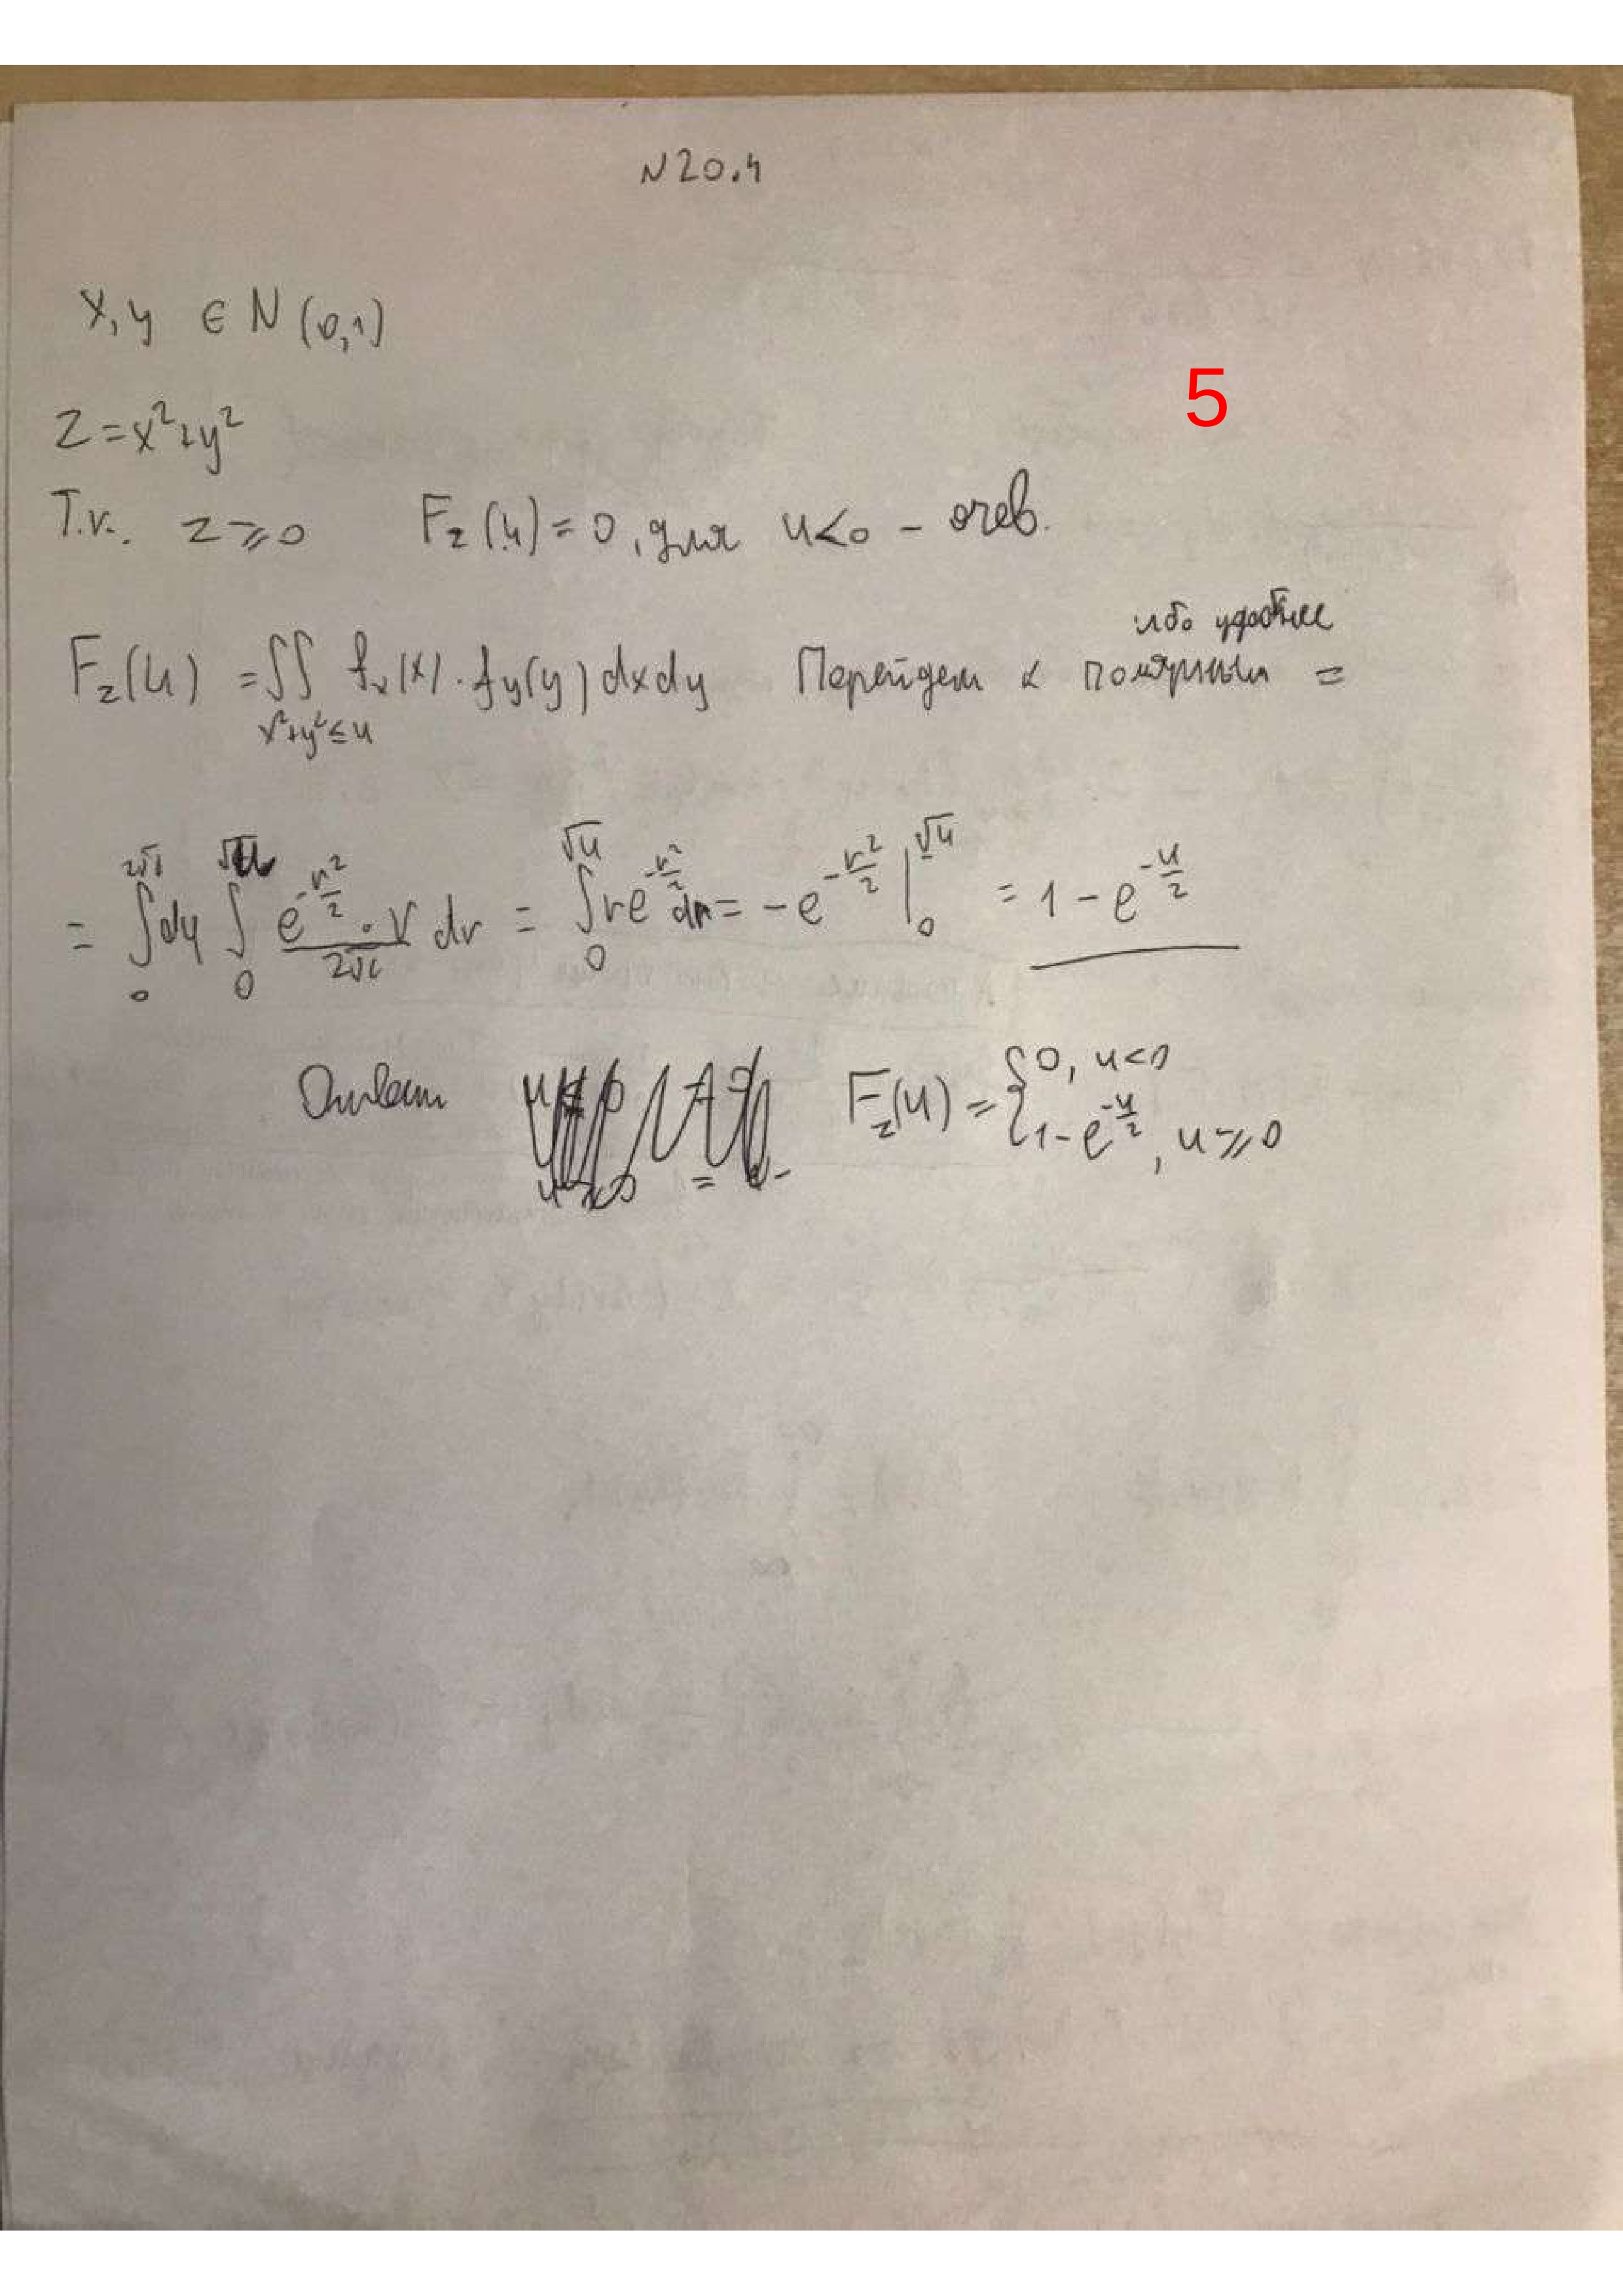 N 20.4
x, y ∈ N(0,1)
5
Z = x² + y²
Т.к. z ⩾ 0 F_z(u) = 0, для u < 0 - очев.
ибо удобнее
F_z(u) = ∬_{x²+y²≤u} f_x(x) · f_y(y) dxdy Перейдем к полярным =
= ∫_0^{2π} dφ ∫_0^{√u} (e^{-r²/2} · r)/(2π) dr = ∫_0^{√u} r e^{-r²/2} dr = -e^{-r²/2} |_0^{√u} = 1 - e^{-u/2}
Ответ F_z(u) = { 0, u < 0
1 - e^{-u/2}, u ⩾ 0